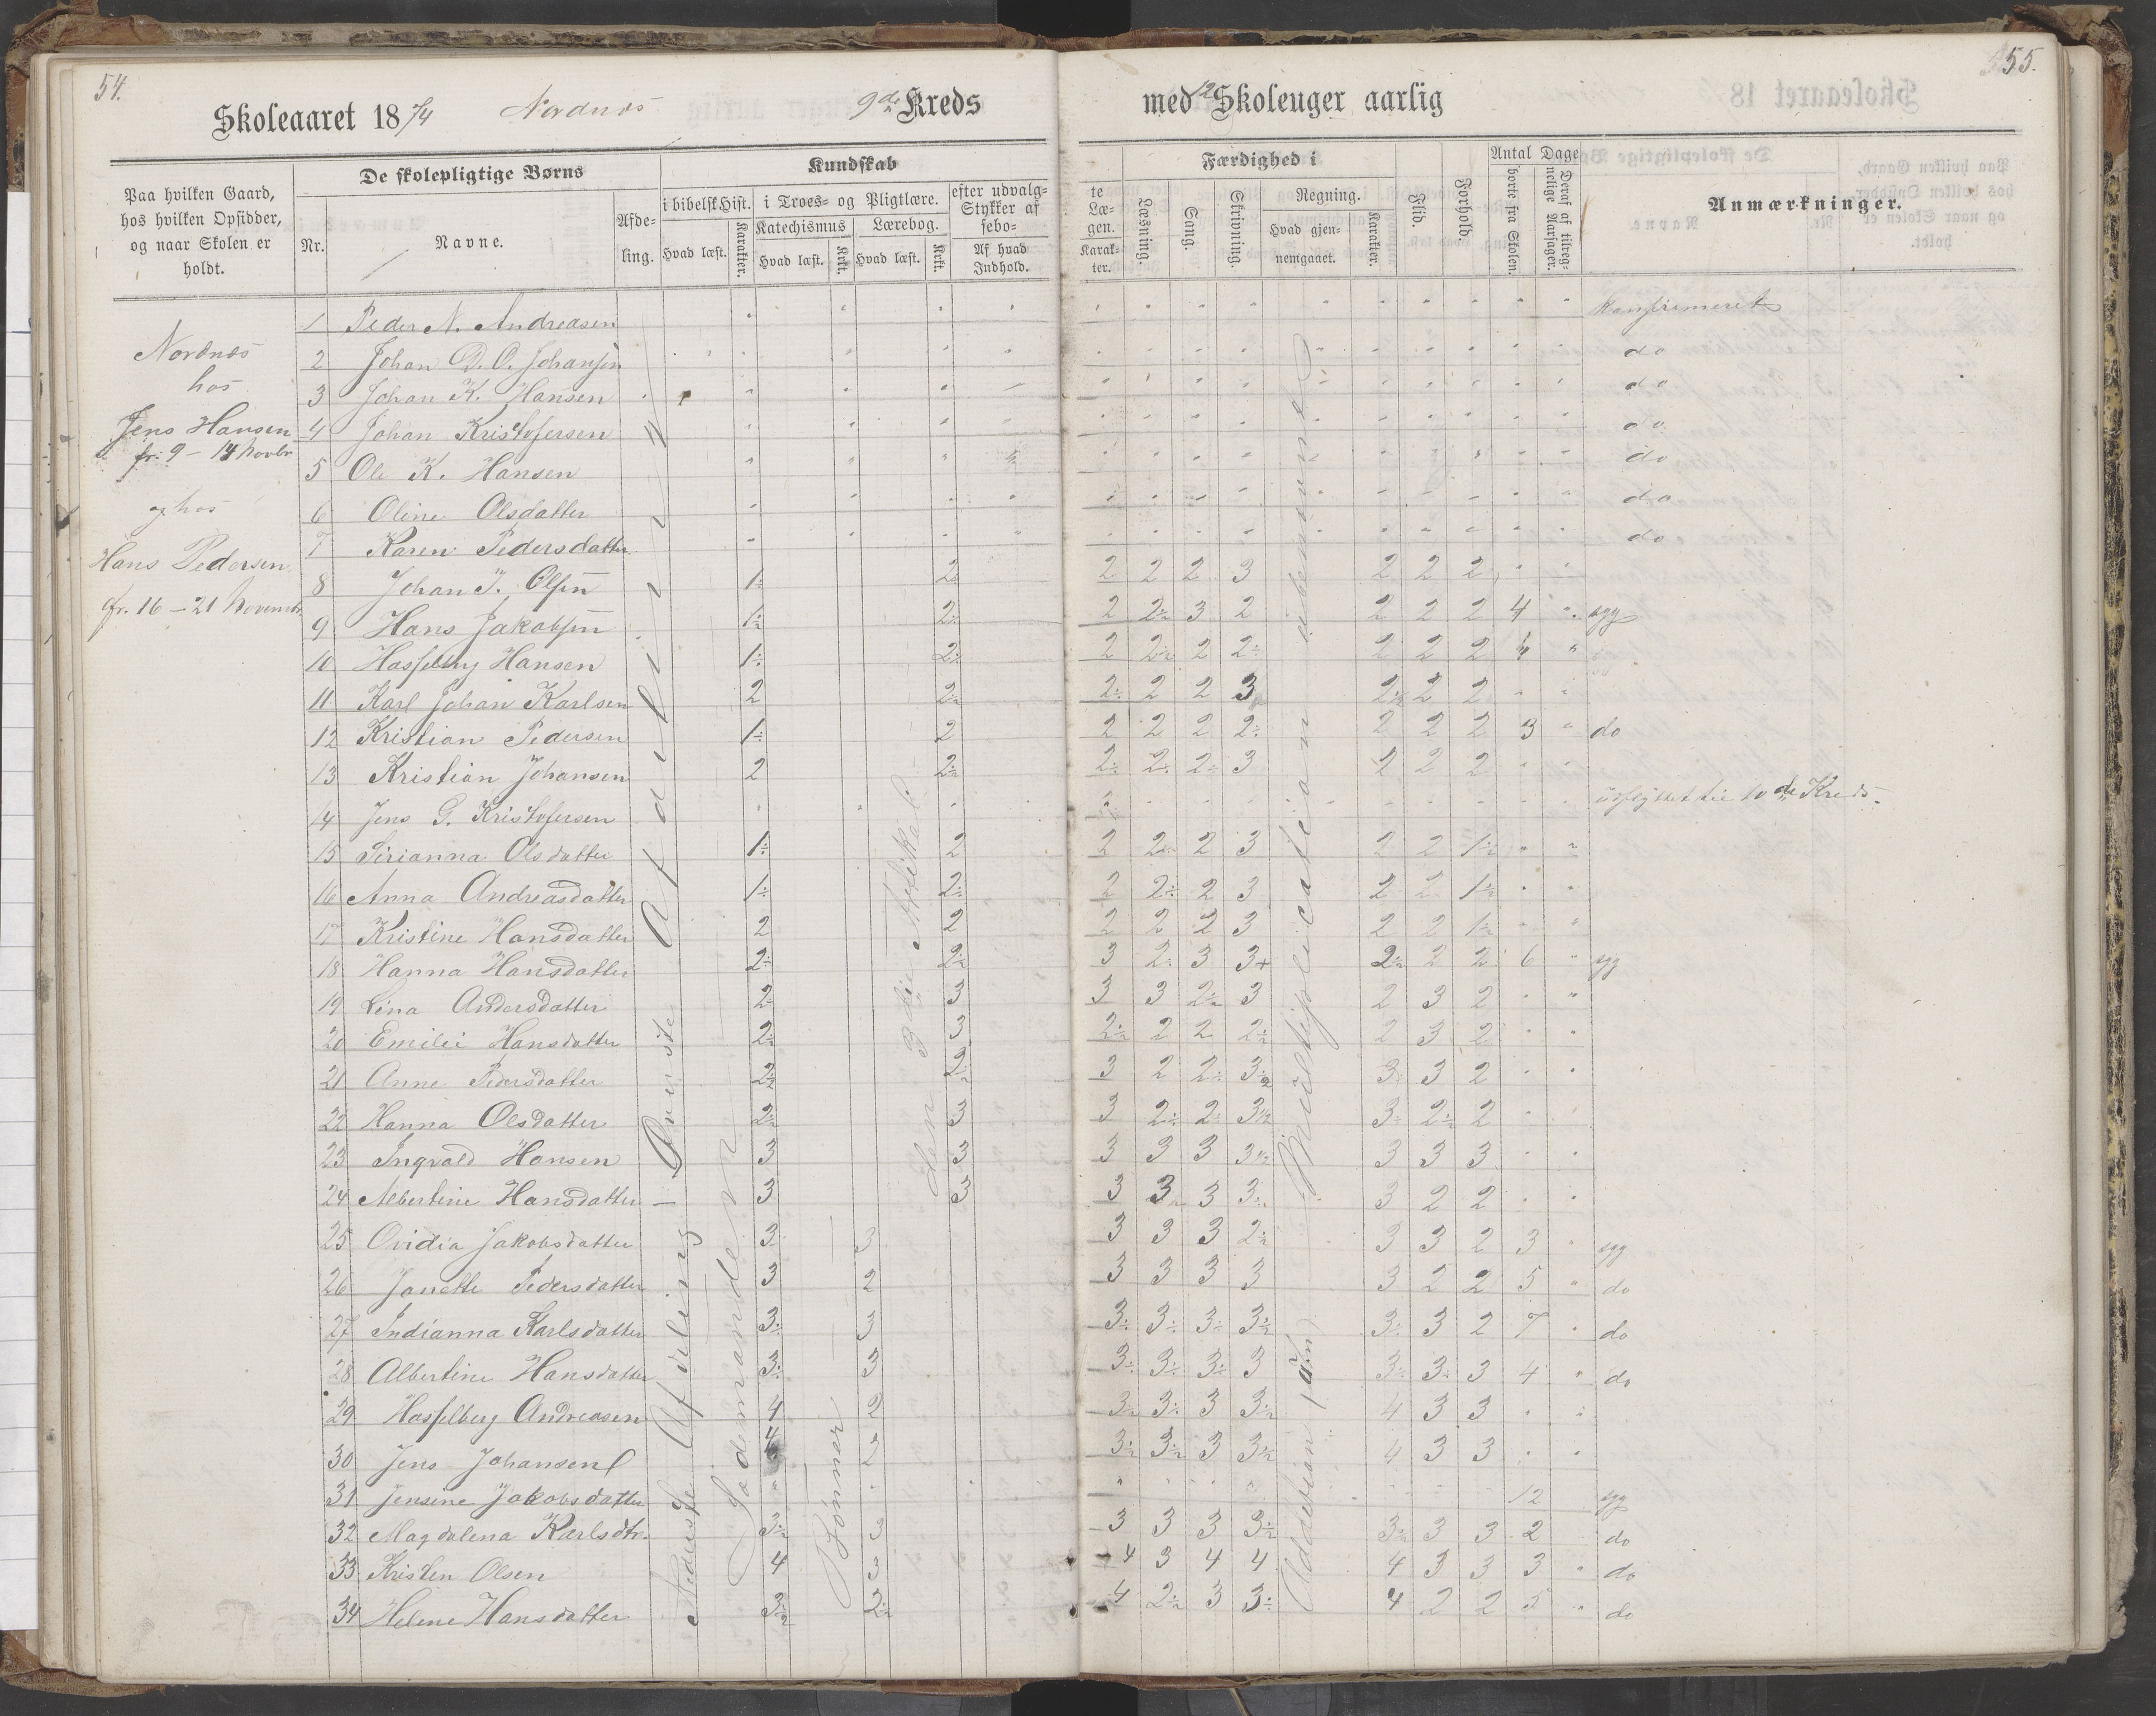 54.
Skoleaaret 1874 Nordnæs 9de Kreds
Paa hvilken Gaard, hos hvilken Opsidder, og naar Skolen er holdt.
De skolepligtige Børns
Nr.
Navne.
Afde-ling.
Kundskab
i bibelsk Hist.
Hvad læst.
Karakter.
i Troes- og Pligtlære.
Katechismus
Hvad læst.
Krkt.
Lærebog.
Hvad læst.
Krkt.
efter udvalg-
Stykker af
sebo-
Af hvad Indhold.
Nordnæs
hos
Jens Hansen
fr. 9 - 14 Novbr
og hos
Hans Pedersen
fr. 16 - 21 Novembr
1 Peder N. Andreasen
2 Johan D. O. Johansen
3 Johan K. Hansen
4 Johan Kristofersen
5 Ole K. Hansen
6 Oline Olsdatter
7 Karen Pedersdatter
8 Johan J. Olsen 1÷ 2
9 Hans Jakobsen 1÷ 2÷
10 Hasselberg Hansen 1÷ 2÷
11 Karl Johan Karlsen 2 2÷
12 Kristian Pedersen 1÷ 2
13 Kristian Johansen 2 2÷
14 Jens G. Kristofersen
15 Sirianna Olsdatter 1÷ 2
16 Anna Andreasdatter 1÷ 2÷
17 Kristine Hansdatter 2 2
18 Hanna Hansdatter 2÷ 2÷
19 Lina Andersdatter 2 3
20 Emilie Hansdatter 2÷ 3
21 Anne Pedersdatter 2÷ 2
22 Hanna Olsdatter 2÷ 3
23 Ingvald Hansen 3 3
24 Albertine Hansdatter 3 3
25 Ovidia Jakobsdatter 3 3
26 Janette Pedersdatter 3 2
27 Indianna Karlsdatter 3÷ 3
28 Albertine Hansdatter 3÷ 3
29 Hasselberg Andreasen 4 2
30 Jens Johansen 4 3
31 Jensine Jakobsdatter
32 Magdalena Karlsdtr. 3÷ 3
33 Kristen Olsen 4 3
34 Helene Hansdatter 3÷ 2÷
Øverste Afdeling
Nederste Afdeling
Syndemanden
Bønner
den 3die Artikel
55.
med 12 Skoleuger aarlig
te Læ-gen.
Karak-ter.
Færdighed i
Læsning.
Sang.
Skrivning.
Regning.
Hvad gjen-nemgaaet.
Karakter.
Flid.
Forhold.
Antal Dage
borte fra Skolen.
Deraf af tilreg-nelige Aarsager.
Anmærkninger.
Konfirmeret
do
do
do
do
do
do
2 2 2 3 2 2 2
2 2÷ 3 2 2 2 2 4 syg
2 2÷ 2 2÷ 2 2 2 4
2÷ 2 2 3 2÷ 2 2
2 2 2 2÷ 2 2 2 3 do
2÷ 2÷ 2÷ 3 2 2 2
udflyttet til 10de Kreds.
2 2÷ 2 3 2 2 1÷
2 2÷ 2 3 2 2 1÷
2 2 2 3 2 2 1÷
3 2÷ 3 3+ 2÷ 2 2 6 syg
3 3 2÷ 3 2 3 2
2÷ 2 2 2÷ 2 3 2
3 2 2÷ 3÷ 3 3 2
3 2÷ 2÷ 3½ 3÷ 2÷ 2
3 3 3 3½ 3 3 3
3 3 3 3÷ 3 2 2
3 3 3 2÷ 3 3 2 3 syg
3 3 3 3 3 2 2 5 do
3÷ 3÷ 3÷ 3÷ 3÷ 3 2 7 do
3÷ 3÷ 3÷ 3 3÷ 3÷ 3 4 do
3÷ 3÷ 3 3÷ 4 3 3
3÷ 3÷ 3 3÷ 4 3 3
12 syg
3 3 3 3÷ 3÷ 3 3 2 do
4 3 4 4 4 3 3 3 do
4 2÷ 3 3÷ 4 2 2 5 do
Multiplication
Addition